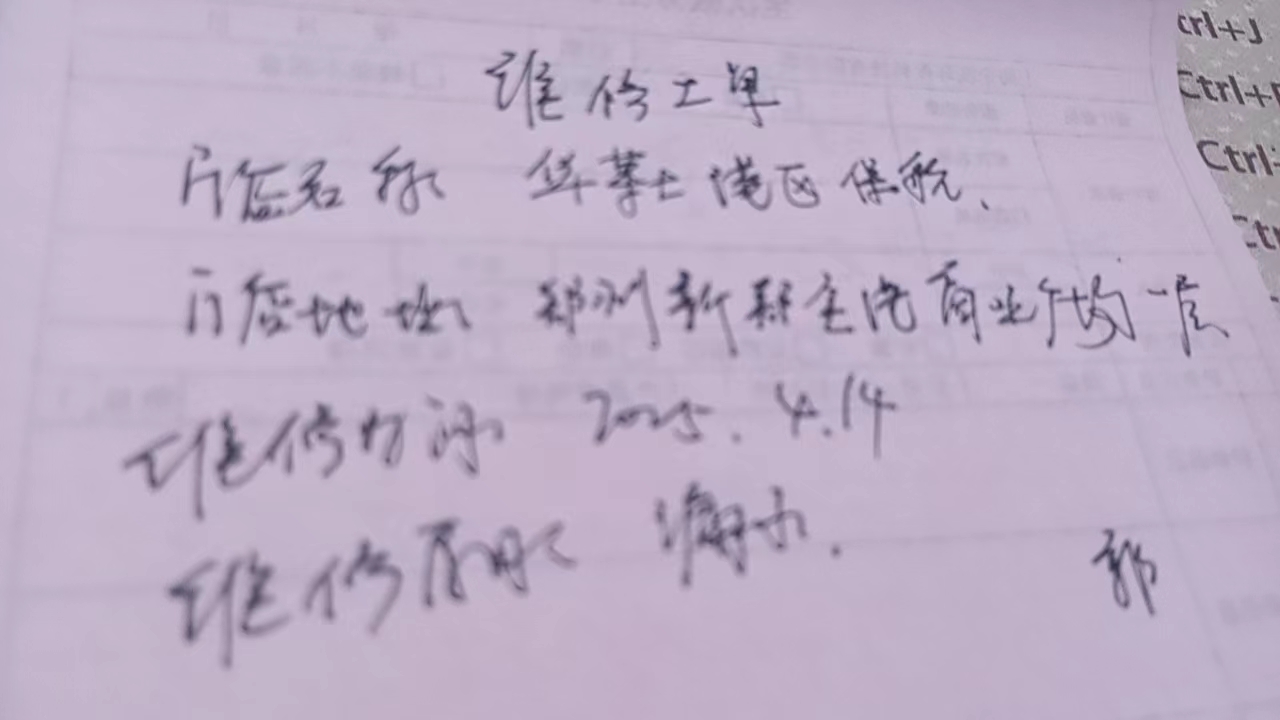 维修工单
门店名称 华莱士港区保税、
门店地址 郑州新郑主港商业广场一层
维修时间 2025.4.14
维修原因 漏水.
郭
Ctrl+J
Ctrl+
Ctrl
Ctr